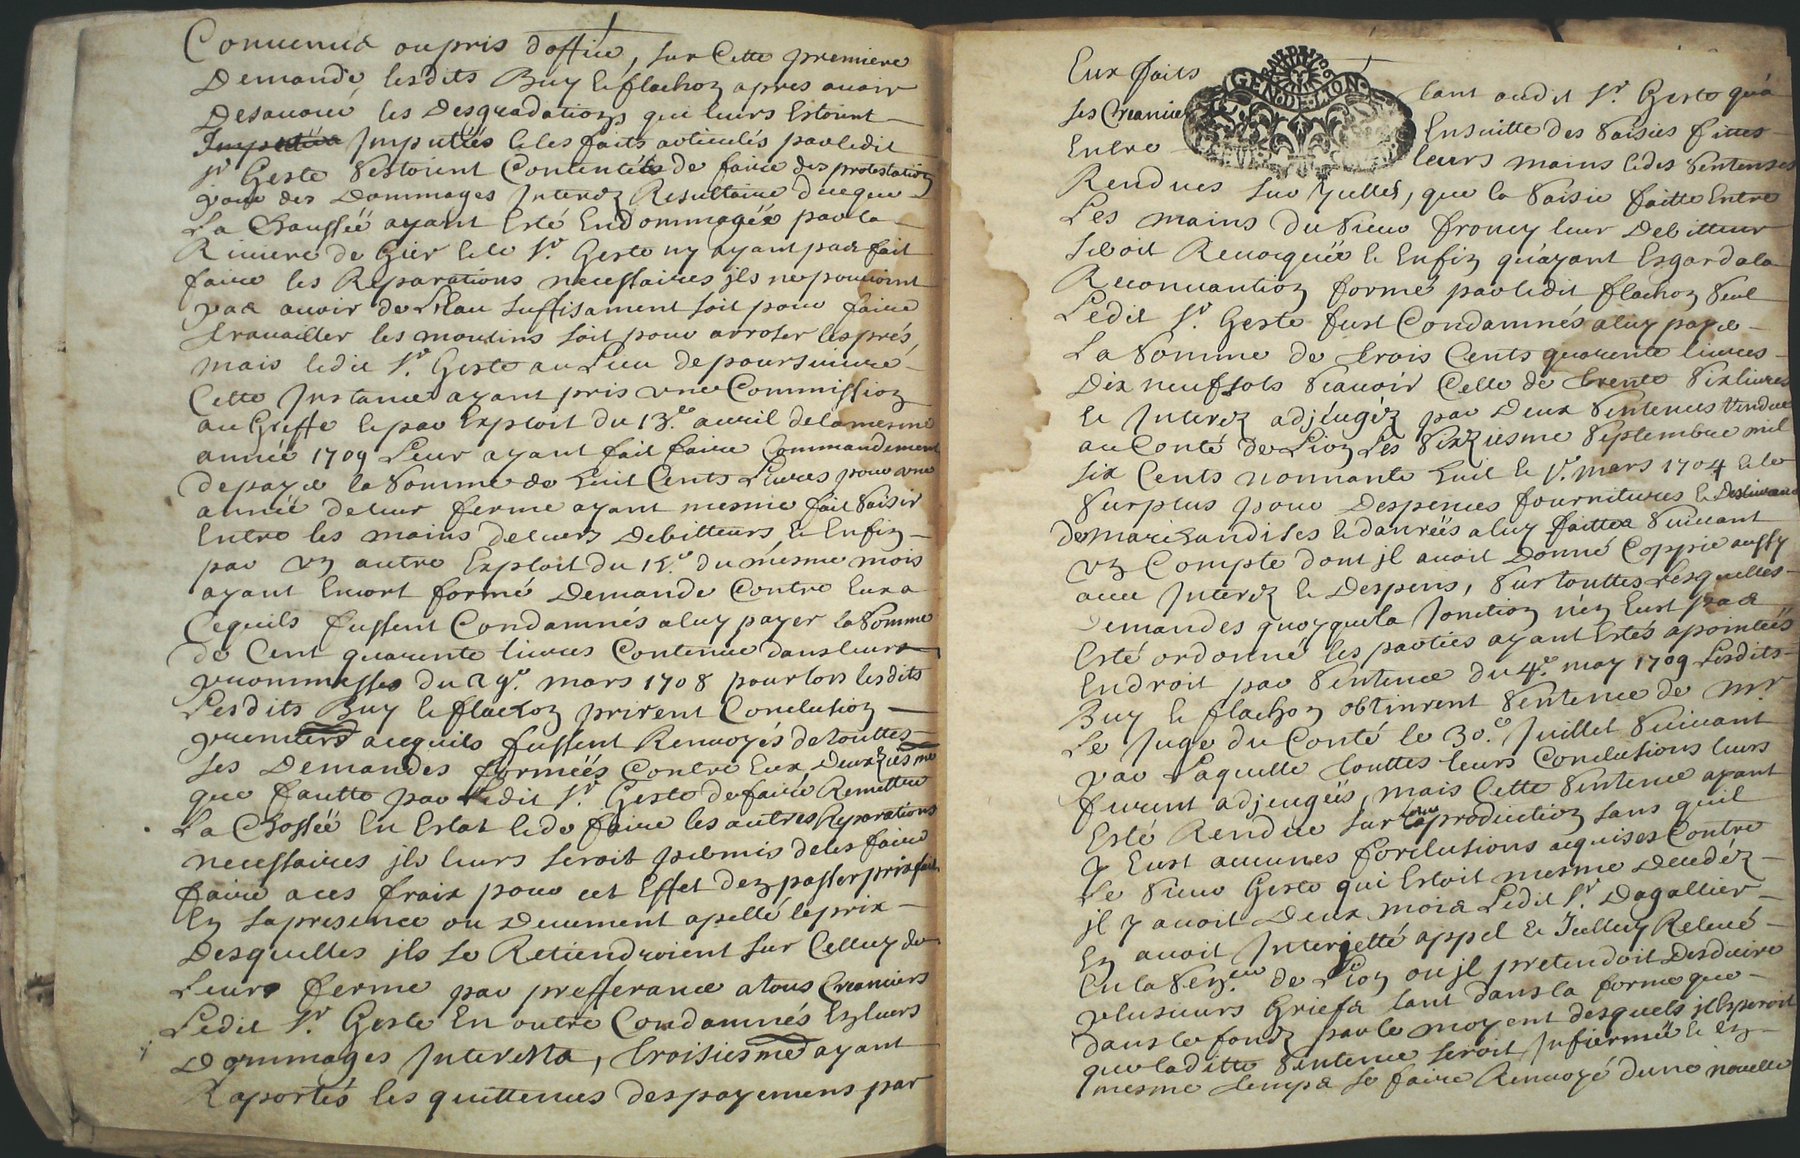 Conuenus ou pris doffice, sur Cette premiere
Demande lesdits Buy et flachon apres auoir
Desauoué les Desgradations qui leurs Estoient
Imputées et les faits articulés par ledit
sr Geste sestoient Contentés de faire des protestations
pour des Dommages Interez Resultans de ce que
La Chaussée ayant Esté Endommagée par la
Riuiere de Gier et le Sr. Geste ny ayant pas fait
faire les Reparations necessaires ils ne pouuoient
pas auoir de L'Eau suffisament soit pour faire
trauailler les moulins soit pour arroser les prés,
mais ledit Sr. Geste au Lieu de poursuiure
Cette Instance ayant pris vne Commission
au Greffe et par Exploit du 13.e auril de la mesme
année 1709 Leur ayant fait faire Commandement
de payer la somme de huit Cents Liures pour vne
année de leur ferme ayant mesme fait saisir
Entre les mains de leurs Debitteurs, et Enfin
par vn autre Exploit du 15.e du mesme mois
ayant Encort formé Demande Contre Eux a
Cequils fussent Condamnés a luy payer la somme
de Cent quarente liures Contenue dans leurs
promesses du 29.e mars 1708 pour lors lesdits
Lesdits Buy et flachon prirent Conclusion
premiers acequils fussent Renuoyés de touttes
ses Demandes formées Contre Eux Deuxiesme
que fautte par Ledit Sr. Geste de faire Remettre
La Chossée En Estat et de faire les autres Reparations
necessaires ils leurs seroit permis de les faire
faire a ces fraix pour cet Effet den passer prisfait
En sa presence ou Deuement apellé le prix
Desquelles ils se Retiendroient sur Celluy de
Leurs ferme par prefferance a tous Creanciers
Ledit Sr. Geste En outre Condamnés En leurs
Dommages Interests, troisiesme ayant
Raportés les quittences des payemens par
Eux faits tant audit Sr. Geste qu'a
ses Creanciers Ensuitte des saisies faittes
Entre leurs mains et des sentenses
GEN·DE·LION·
Rendues sur ycelles, que la saisie faitte Entre
Les mains du sieur froncy leur Debitteur
seroit Reuoquée et Enfin qu'ayant Esgard a la
Reconuantion formé par ledit flachon seul
Ledit Sr. Geste fust Condamnés a luy payer
La somme de trois Cents quarente liures
Dix neuf sols scauoir Celle de trente six liures
et Interez adjeugéz par Deux sentences Rendues
au Conté de Lion Les sixziesme septembre mil
six Cents nonnante huit et 1.r mars 1704 et le
surplus pour Despences fournitures et Desliurance
de marchandises et danrées a luy faittes suiuant
vn Compte dont il auoit Donné Coppie aussy
auec Interez et Despens, sur touttes Lesquelles
Demandes quoyque la Jonction n'en Eust pas
Esté ordonné les parties ayant Estés apointées
En droit par sentence du 4.e may 1709 Lesdits
Buy et flachon obtinrent sentence de Mr
Le Juge du Conté le 30.e Juillet suiuant
par Laquelle touttes leurs Conclusions leurs
furent adjeugées, mais Cette sentence ayant
Esté Rendue sur leur production sans quil
y Eust aucunes forclusions aquises Contre
Le sieur Geste qui Estoit mesme Decedéz
il y auoit Deux mois Ledit Sr. Dagallier
En auoit Interjetté appel et Icelluy Releué
En la Sen.ée de Lion ou il pretendoit Desduire
plusieurs Griefs tant dans la forme que
dans le fonds par le moyent desquels il Esperoit
que laditte sentence seroit Infiermée et En
mesme temps se faire Renuoyé dune nouelle